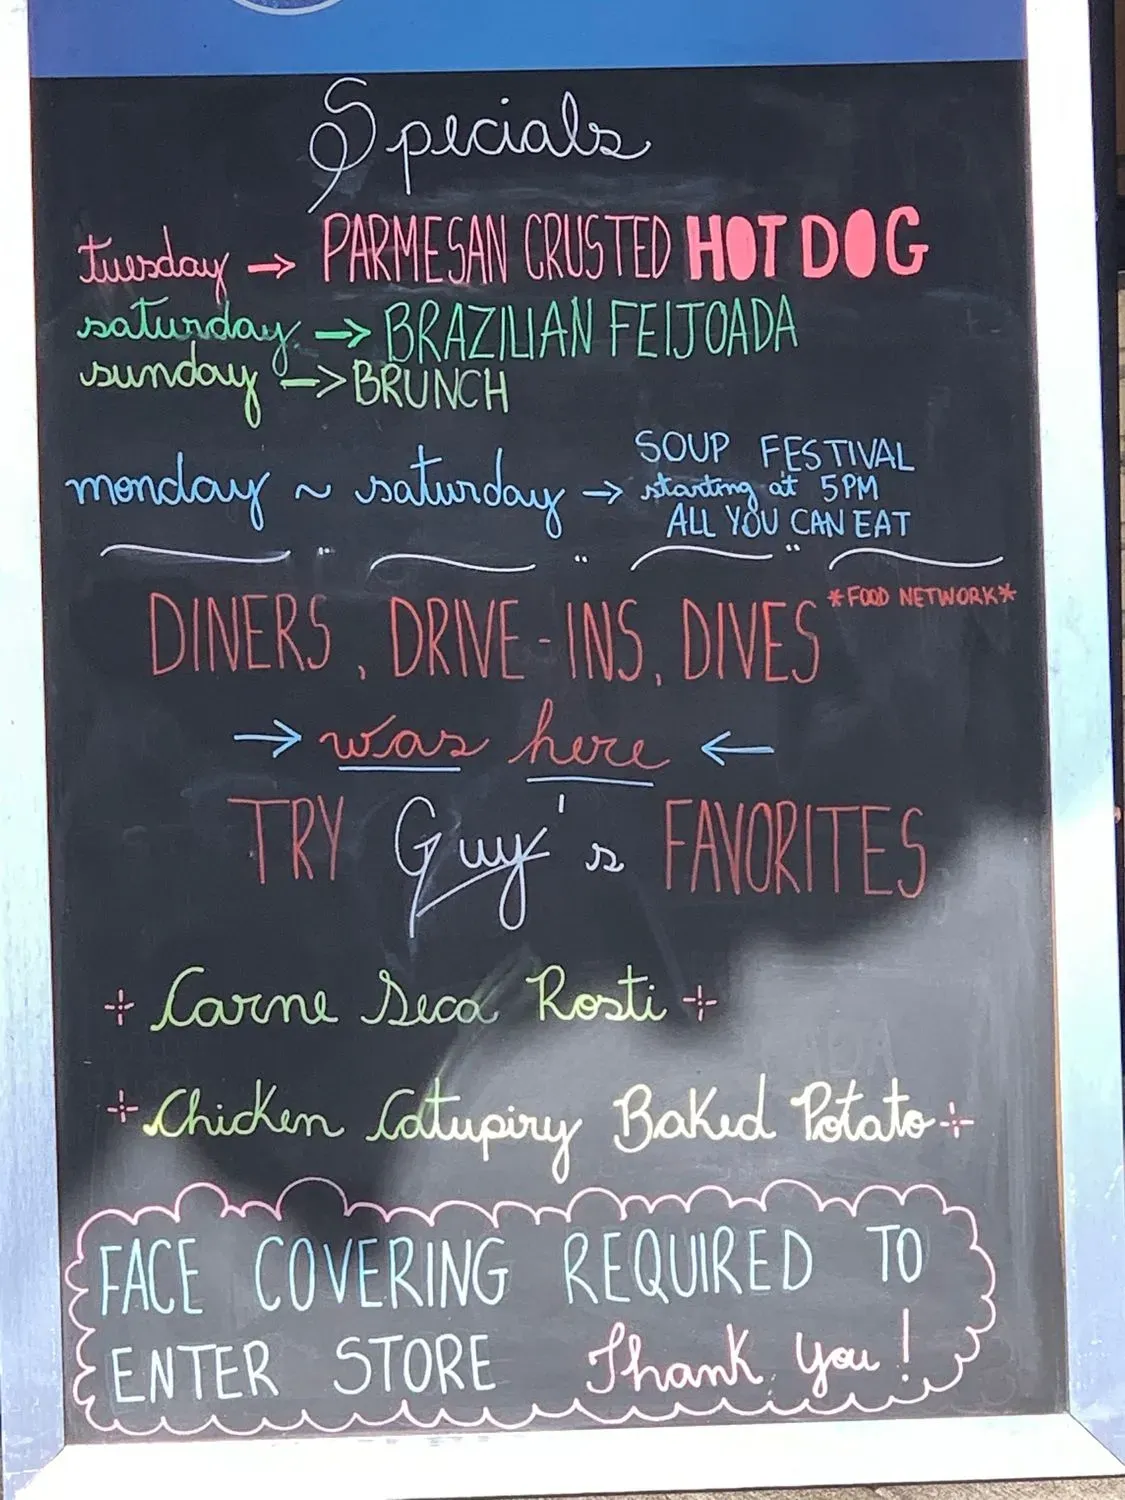 Specials
tuesday → PARMESAN CRUSTED HOT DOG
saturday → BRAZILIAN FEIJOADA
sunday → BRUNCH
monday ~ saturday → SOUP FESTIVAL
starting at 5PM
ALL YOU CAN EAT
DINERS, DRIVE-INS, DIVES *FOOD NETWORK*
→ was here ←
TRY Guy's FAVORITES
Carne Seca Rosti
Chicken Catupiry Baked Potato
FACE COVERING REQUIRED TO
ENTER STORE Thank you!